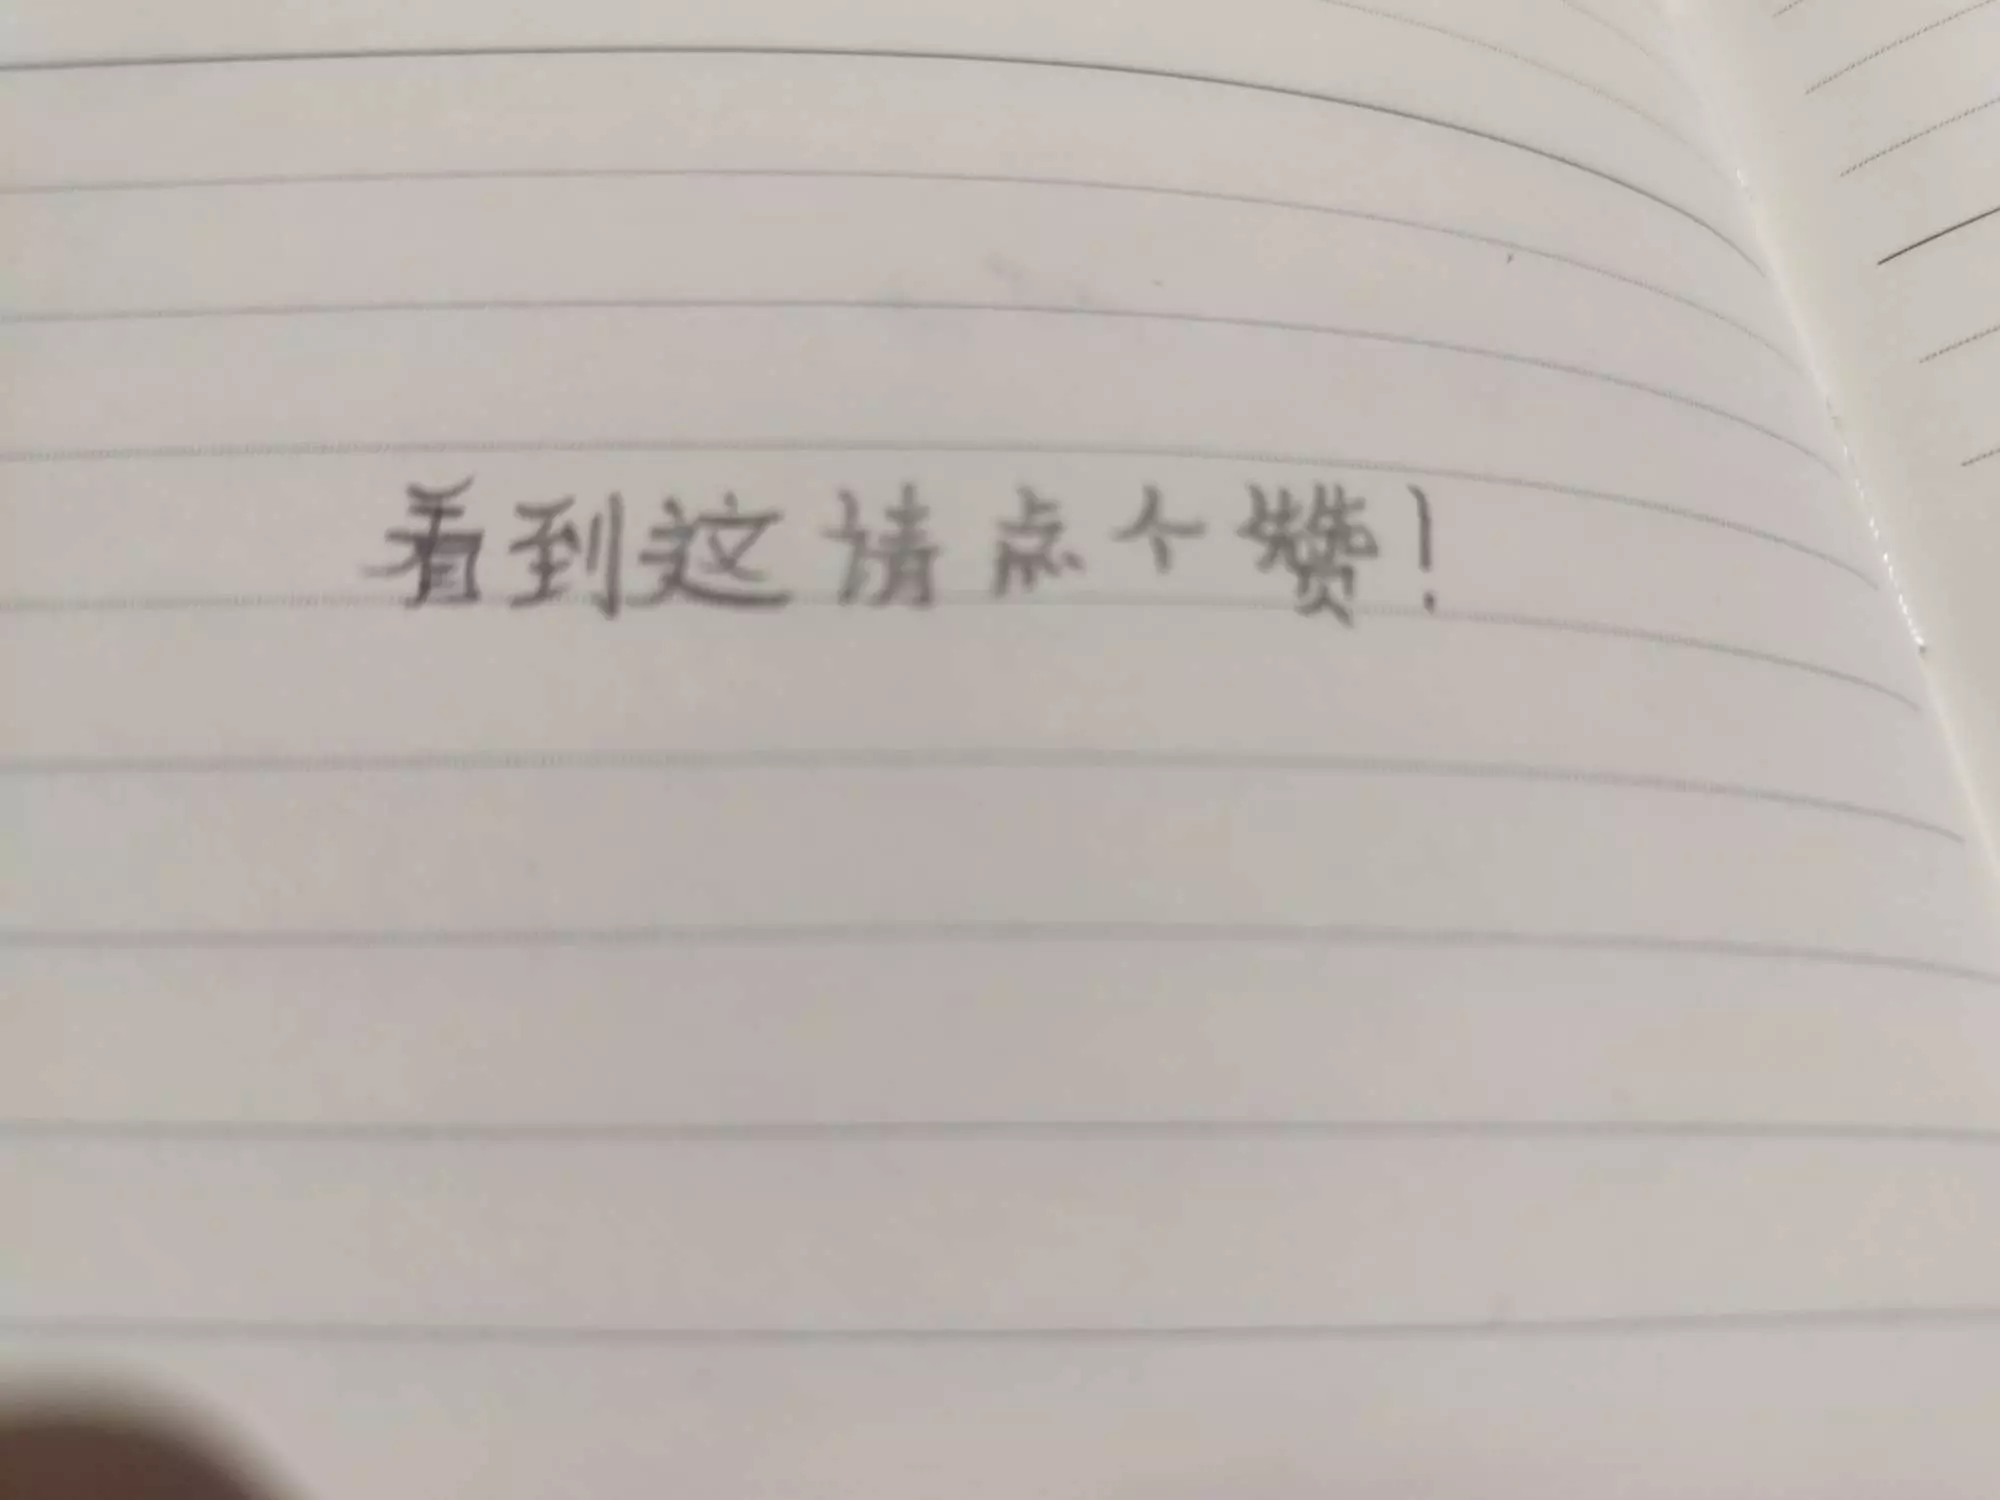 看到这请点个赞！